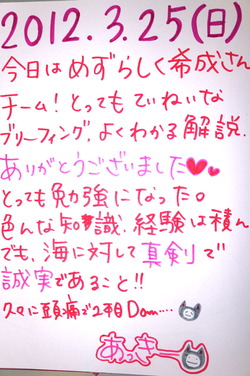 2012.3.25(日)
今日はめずらしく希成さん
チーム!とってもていねいな
ブリーフィング。よくわかる解説。
ありがとうございました♥♥。
とっても勉強になった。
色んな知識、経験は積ん
でも、海に対して真剣で
誠実であること!!
久々に頭痛で2本目Down....
あっき